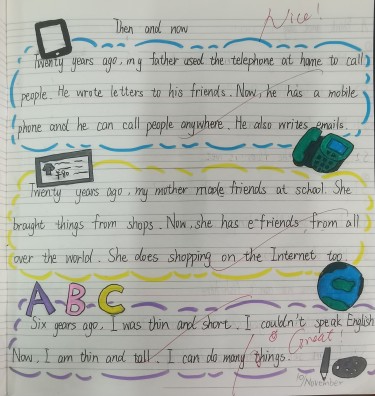 Nice!
Then and now
Twenty years ago, my father used the telephone at home to call
people. He wrote letters to his friends. Now, he has a mobile
phone and he can call people anywhere. He also writes emails.
¥80
Twenty years ago, my mother made friends at school. She
brought things from shops. Now, she has e-friends from all
over the world. She does shopping on the Internet too.
A B C
Six years ago, I was thin and short. I couldn't speak English
Now, I am thin and tall. I can do many things.
Great!
19 November